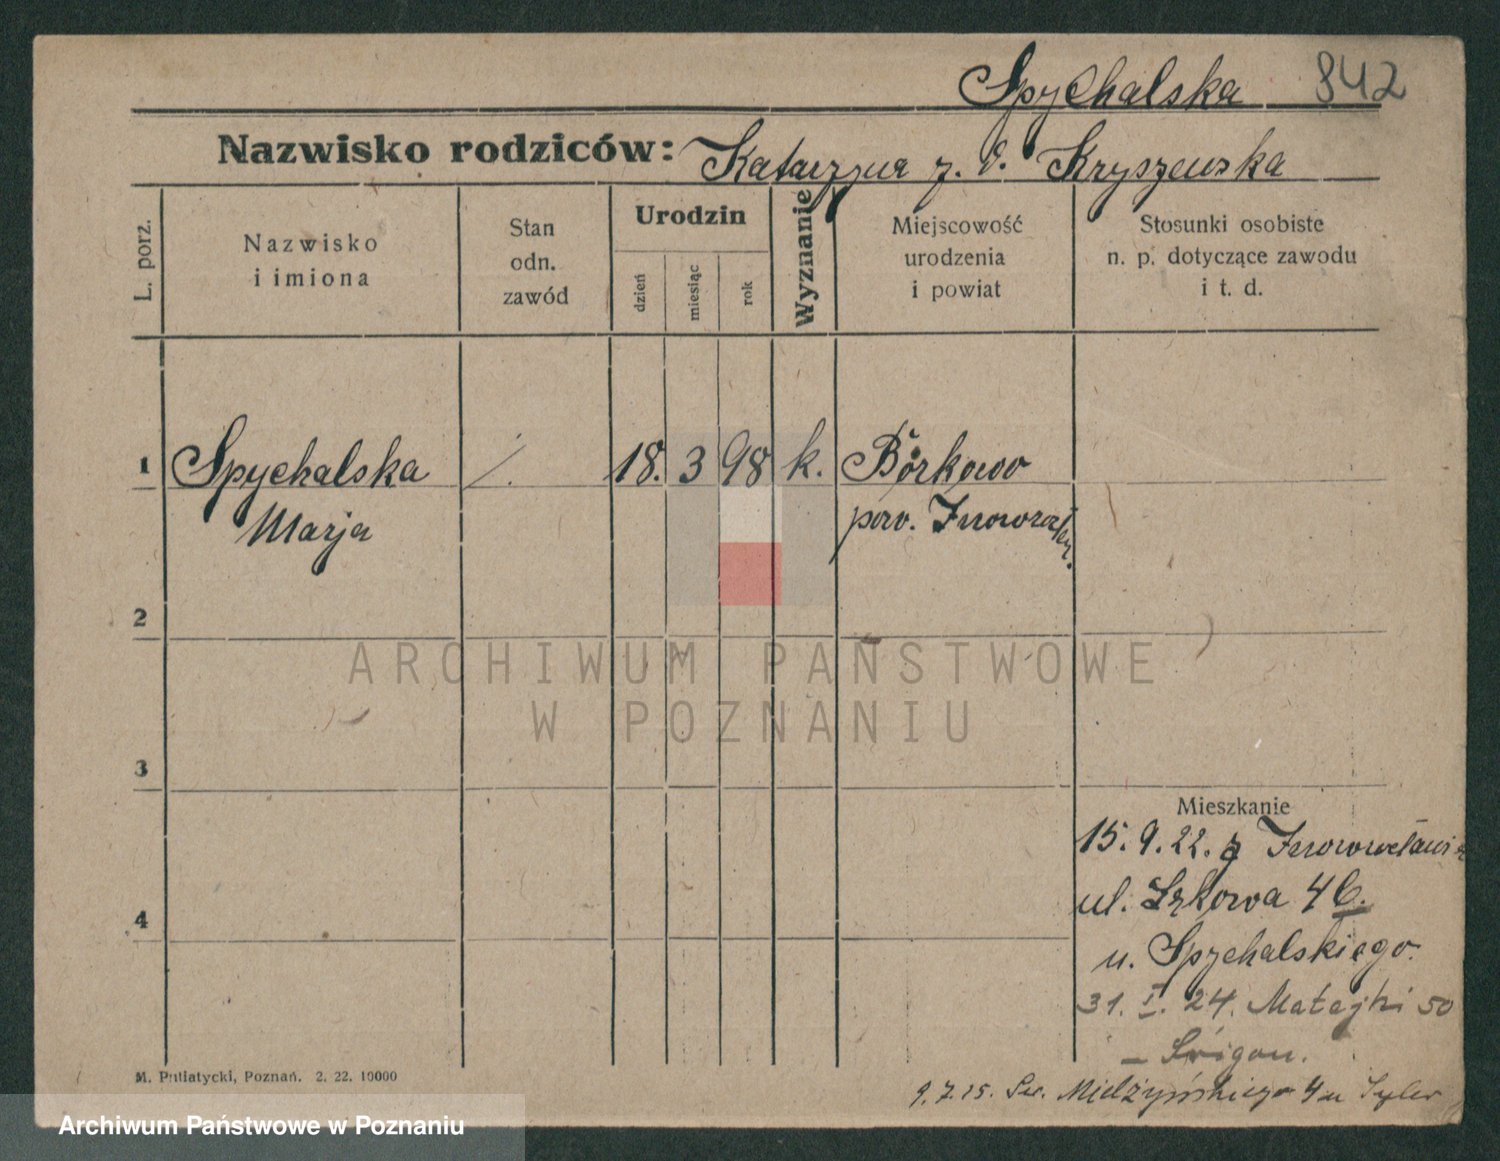 Spychalska 842
Nazwisko rodziców: Katarzyna z. d. Kryszewska
L. porz.
Nazwisko
i imiona
Stan
odn.
zawód
Urodzin
dzień
miesiąc
rok
Wyznanie
Miejscowość
urodzenia
i powiat
Stosunki osobiste
n. p. dotyczące zawodu
i t. d.
1 Spychalska 18. 3 98 k. Borkowo
Marja pow. Inowrocław.
2
3
4
Mieszkanie
15. 9. 22. z Inowrocławia
ul.
u. Spychalskiego.
31. I. 24. Matejki 50
9. 7. 25. Mielżyńskiego 4 u
M. Putiatycki, Poznań. 2. 22. 10000
ARCHIWUM PAŃSTWOWE
W POZNANIU
Archiwum Państwowe w Poznaniu